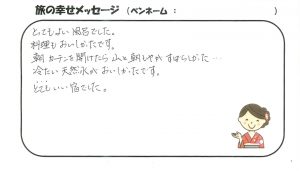 旅の幸せメッセージ (ペンネーム： )
とてもよい風呂でした。
料理もおいしかったです。
朝カーテンを開けたら山と朝もやがすばらしかた…
冷たい天然水がおいしかたです。
とてもいい宿でした。